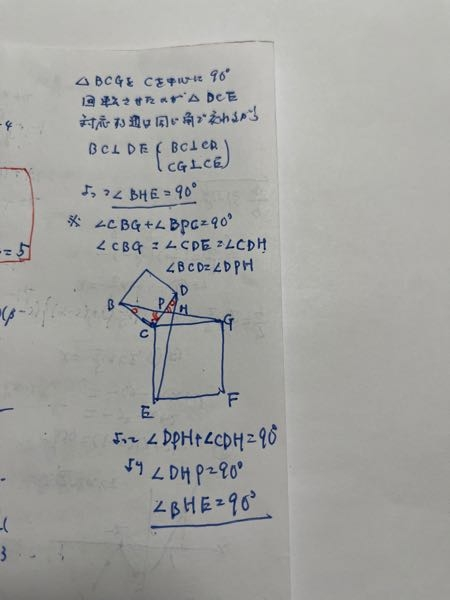 △BCGを Cを中心に 90°
回転させたのが △DCE
対応する辺は同じ角で交わるから
BC⊥DE ( BC⊥CD
CG⊥CE )
よって∠BHE=90°
※ ∠CBG+∠BPC=90°
∠CBG=∠CDE=∠CDH
∠BCD=∠DPH
B
D
P
H
C
G
E
F
よって ∠DPH+∠CDH=90°
より ∠DHP=90°
∠BHE=90°
4
=5
(β-
3